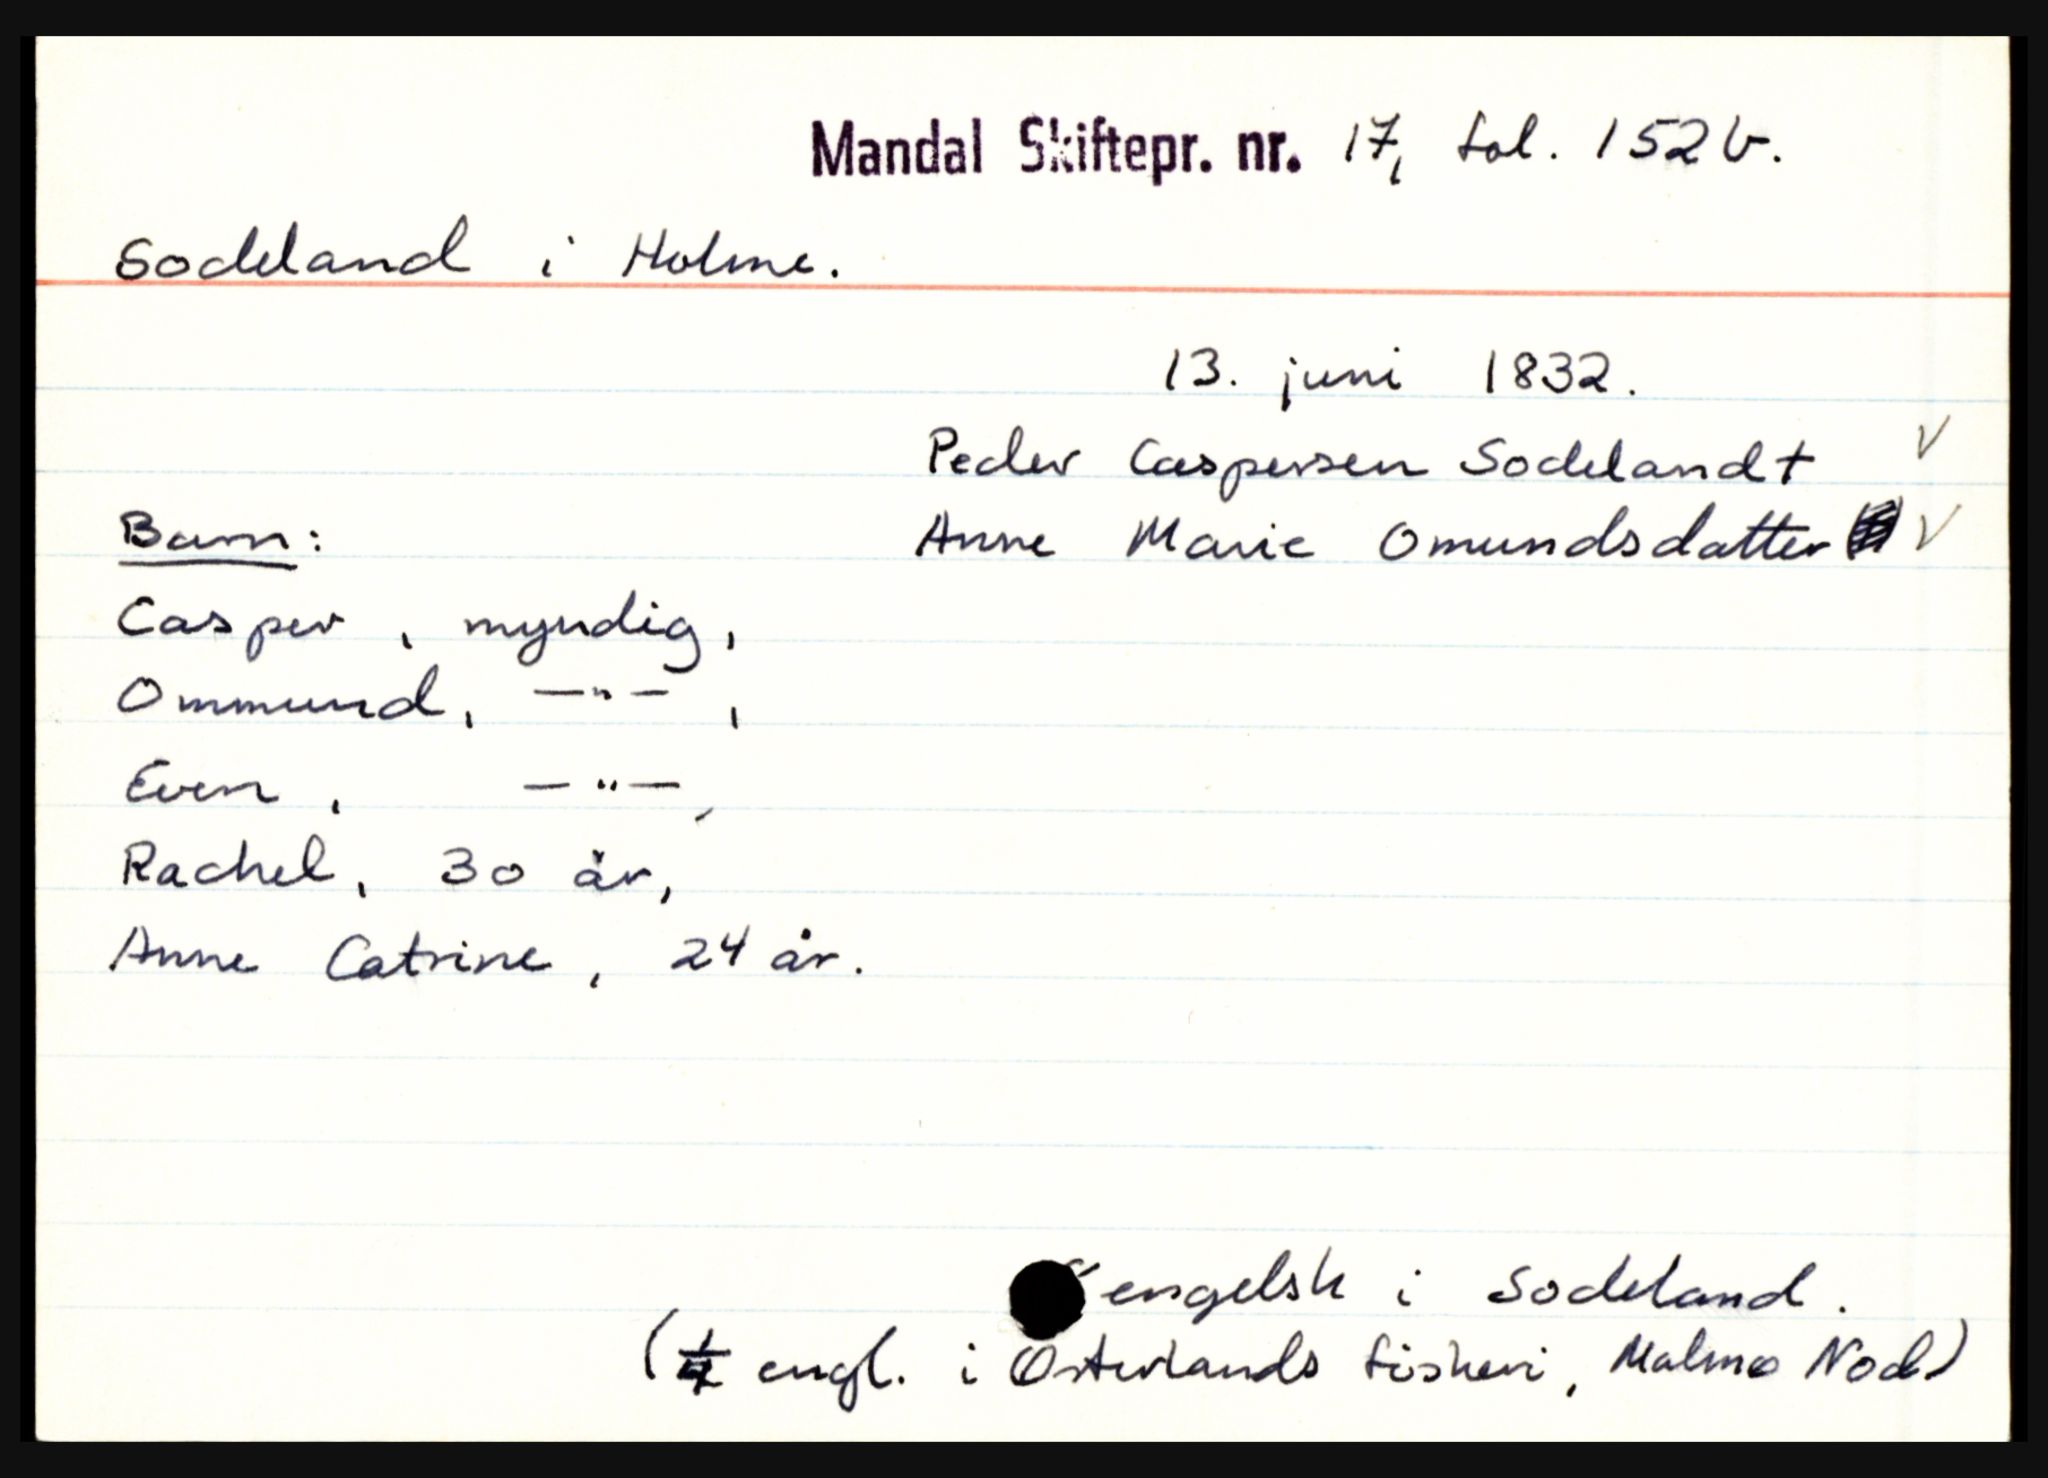 Mandal Skiftepr. nr. 17, fol. 152 b.
Sodeland i Holme.
13. juni 1832.
Peder Caspersen Sodeland †
Anne Marie Omundsdatter
Barn:
Casper, myndig,
Ommund, —"—,
Even, —"—,
Rachel, 30 år,
Anne Catrine, 24 år.
engelsk i Sodeland.
( engl. i Østerlands fiskeri, Malmø Nod)